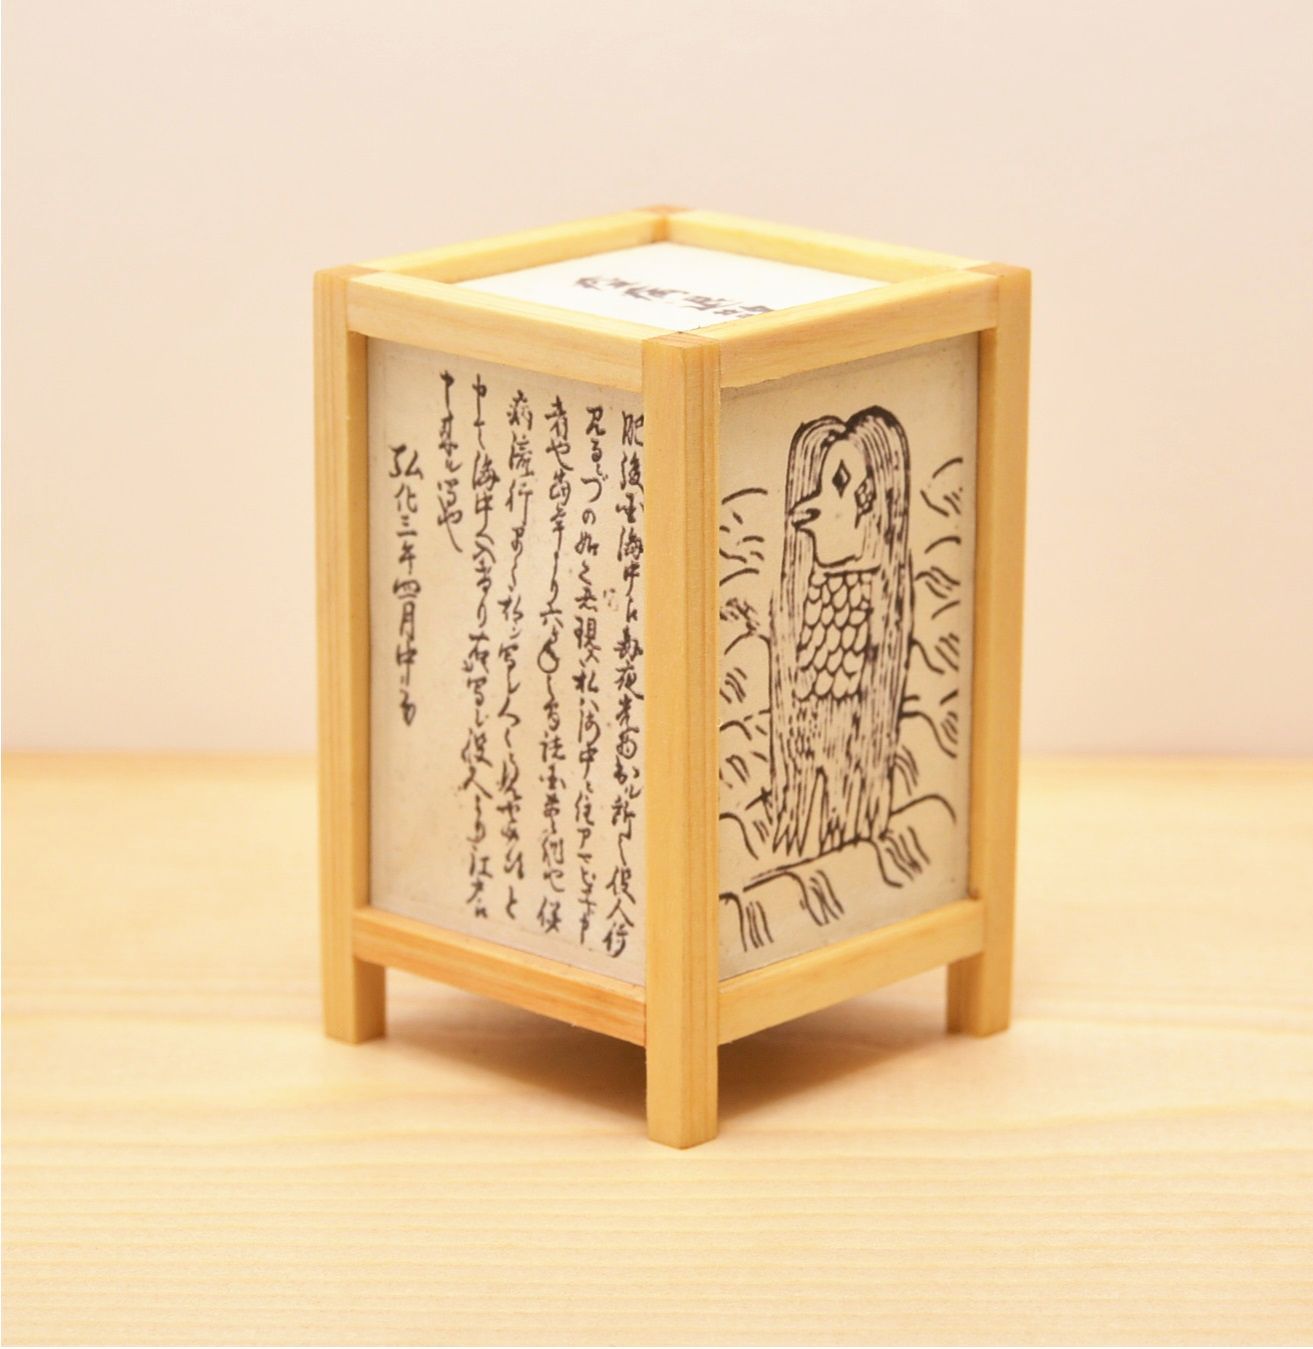 肥後国海中江毎夜光物出ル所之役人行
見るニづの如之者現ス私ハ海中ニ住アマビヱト申
者也当年より六ヶ年之間諸国豊作也併
病流行早々私シ写シ人々ニ見セ候得と
申て海中へ入けり右写シ役人より江戸江
申来ル写也
弘化三年四月中旬